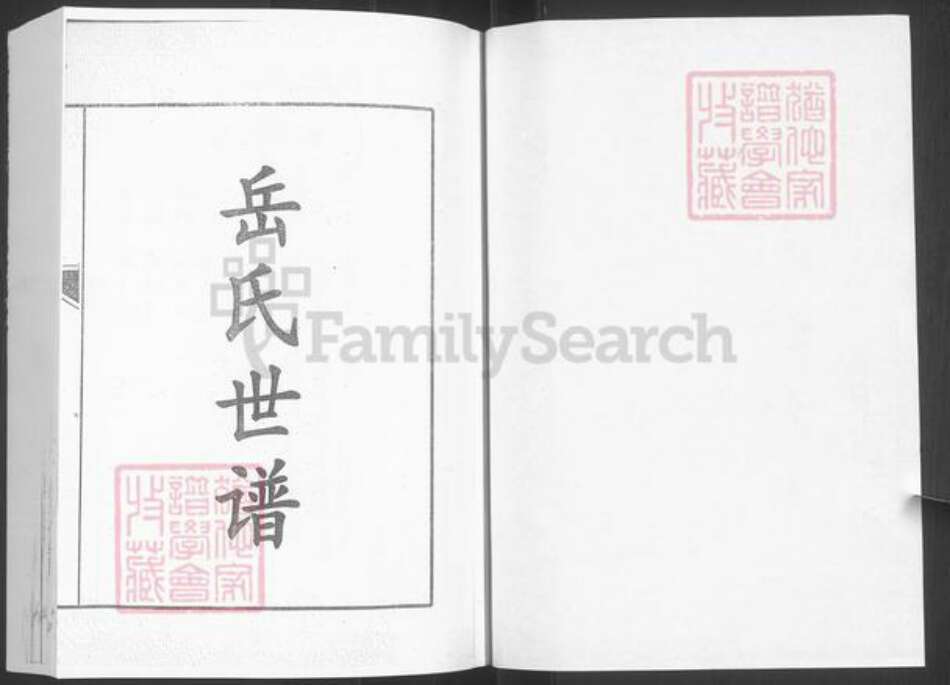 岳氏世谱
猶他家
譜學會
收藏
猶他家
譜學會
收藏
FamilySearch